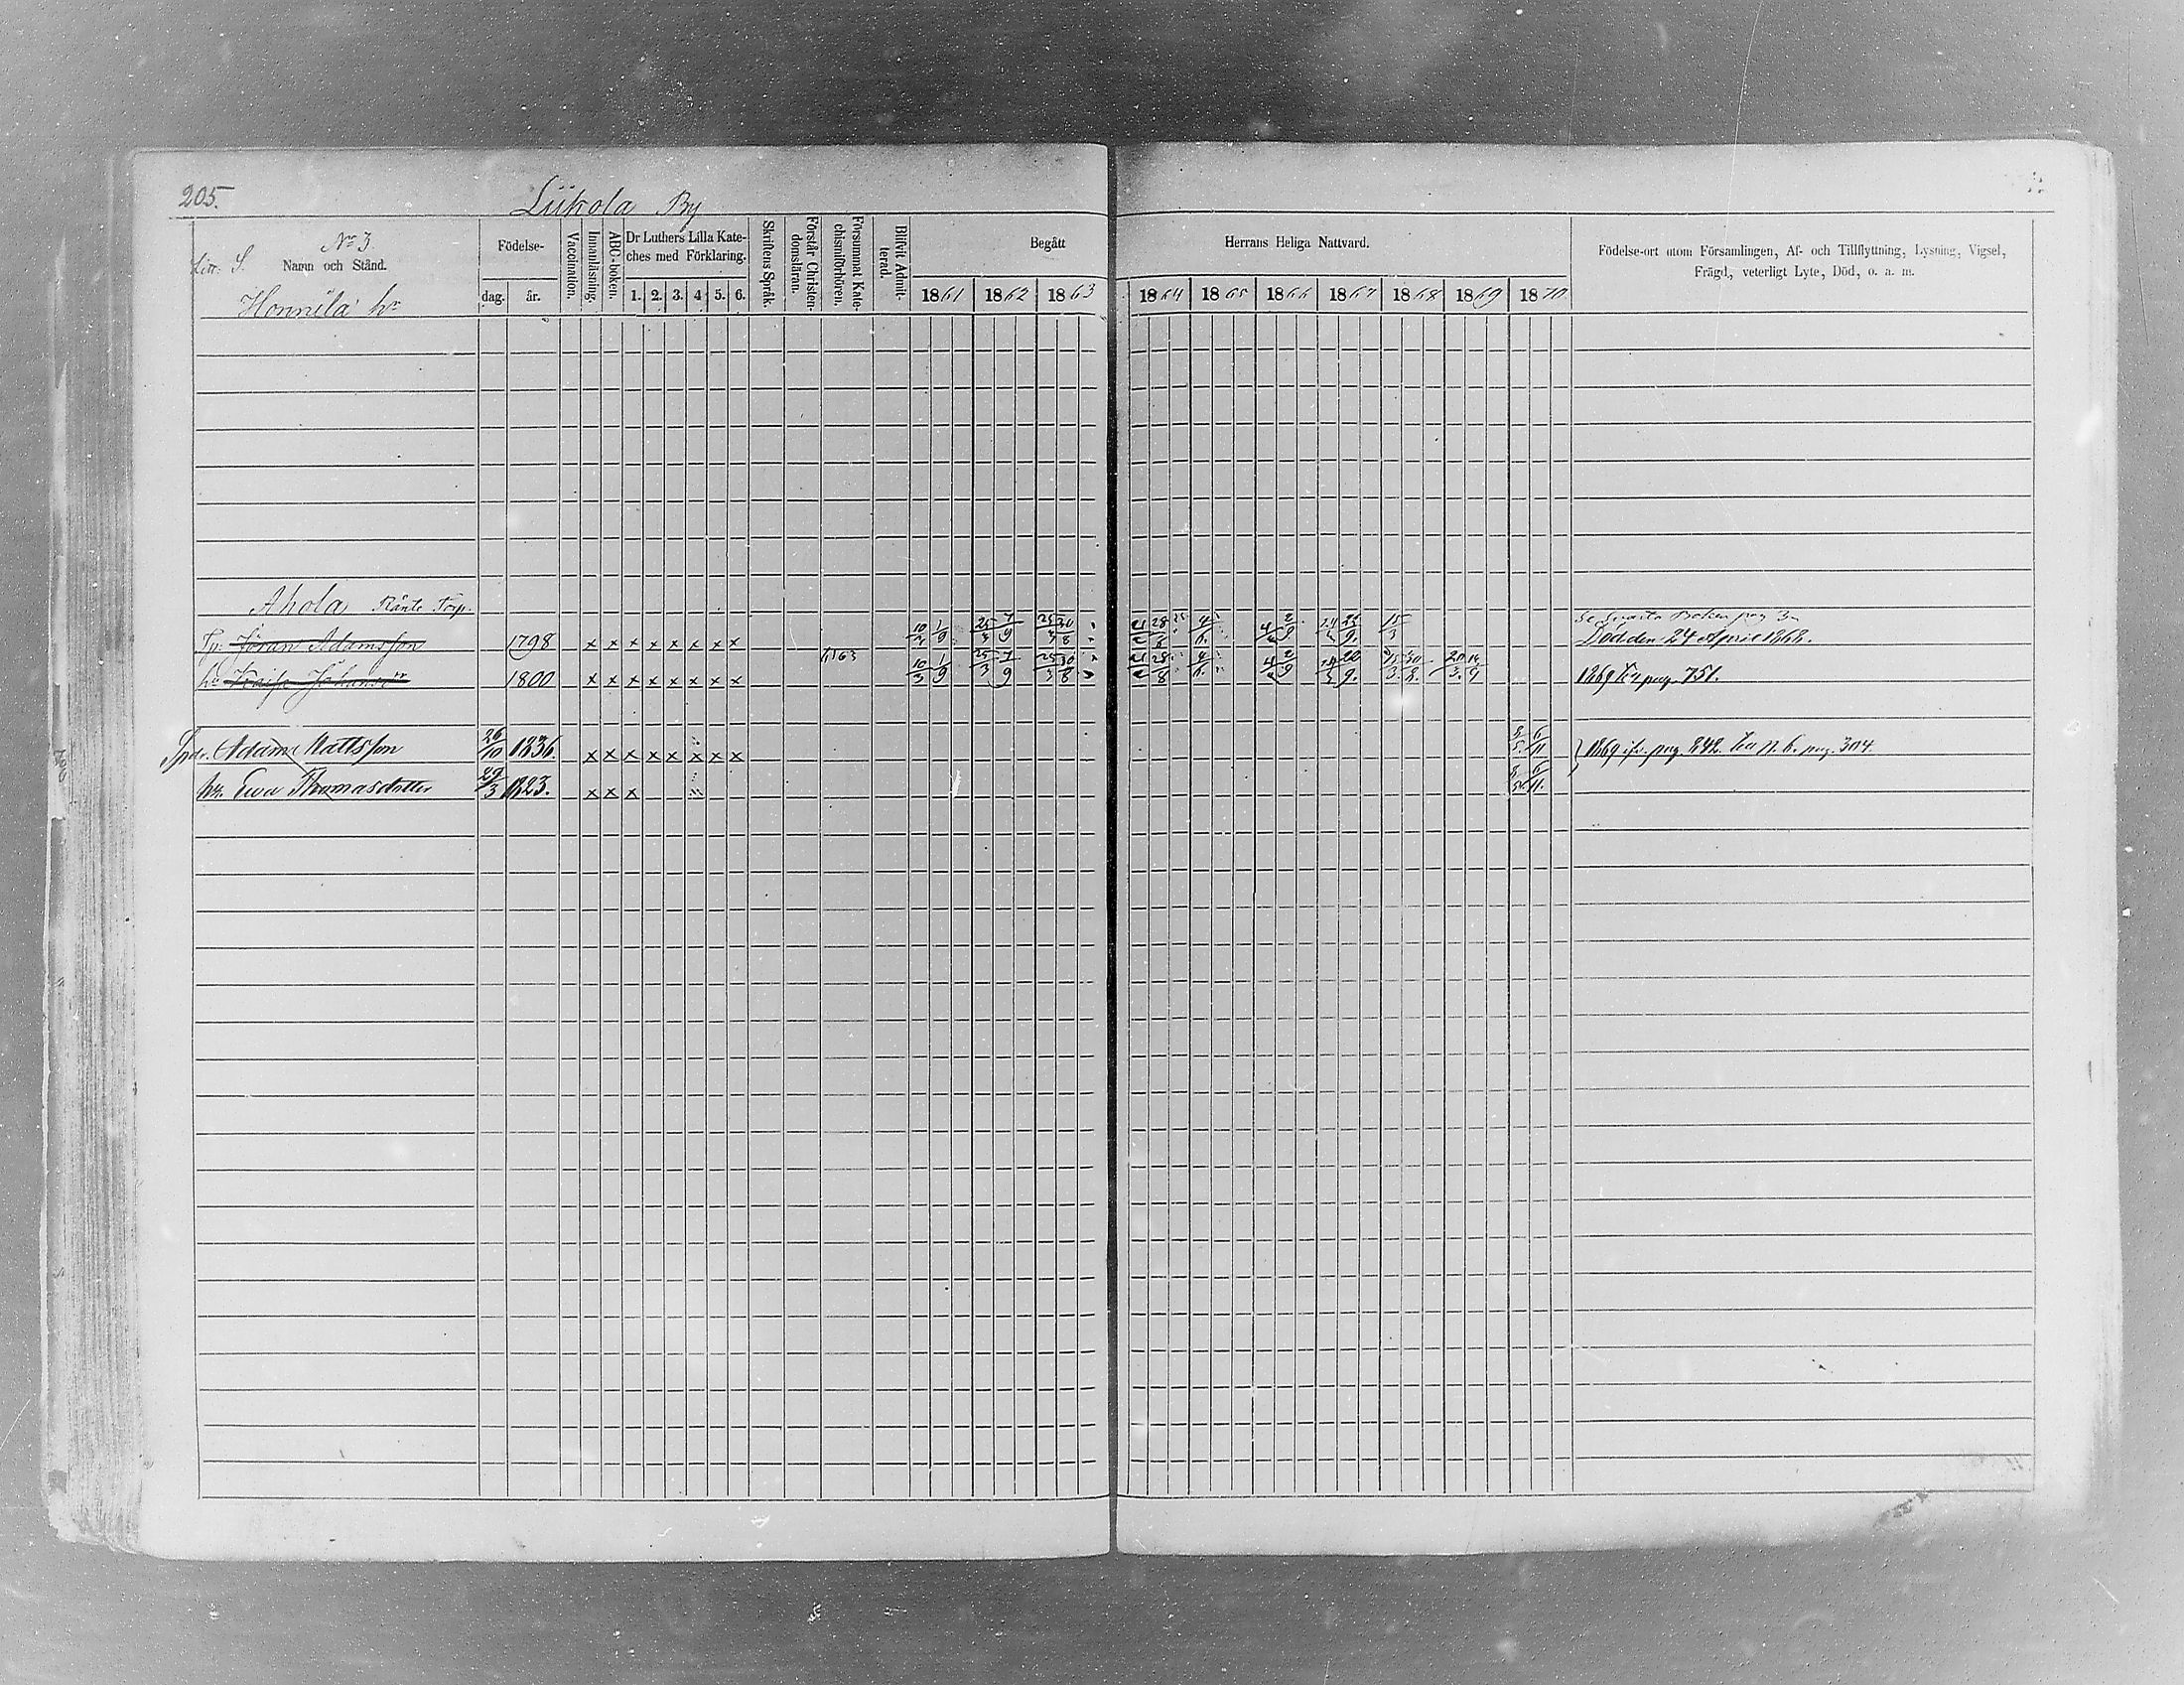 205.
Liikola By
No 3.
Litt. S.
Namn och Stånd.
Honnila hn
Födelse-
dag. år.
Vaccination.
Innanläsning.
ABC-boken.
Dr Luthers Lilla Kate-
ches med Förklaring.
1. 2. 3. 4 5. 6.
Skriftens Språk.
Förstår Christen-
domsläran.
Försummat Kate-
chismiförhören.
Blifvit Admit-
terad.
Begått
Herrans Heliga Nattvard.
1861 1862 1863 1864 1865 1866 1867 1868 1869 1870
Födelse-ort utom Församlingen, Af- och Tillflyttning, Lysning, Vigsel,
Frägd, veterligt Lyte, Död, o. a. m.
Ahola Ränte Torp.
Se Svarta Boken pag
Jöran Adamsson 1798 x x x x x x x x 10/3 1/9 25/3 7/9 Död den 24 April 1868.
hu Kaisa Johansdr 1800 x x x x x x x x 10/3 1/9 25/3 7/9 25/3 30/8 1869 pag. 751.
Adam Mattsson 26/10 1836. x x x x x x x x 8/5. 6/11 1869 pag. 842. pag. 304
hu. Ewa Thomasdotter 29/3 1823. x x x 8/5. 6/11.